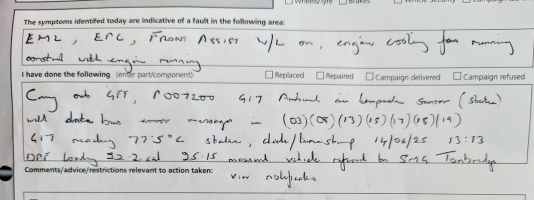 Brakes
The symptoms identified today are indicative of a fault in the following area:
EML, EPC, FRONT ASSIST W/L on, engine cooling fan running
constant with engine running
I have done the following (enter part/component): Replaced Repaired Campaign delivered Campaign refused
Carry out GFF, P007200 G17 Ambient air temperature sensor (static)
with data bus error message in (03)(08)(13)(15)(17)(18)(19)
G17 reading 77.5°C static, date/timestamp 14/06/25 13:13
DPF loading 32.2 cal 35.15 measured vehicle referred to SMG Tonbridge
Comments/advice/restrictions relevant to action taken:
view